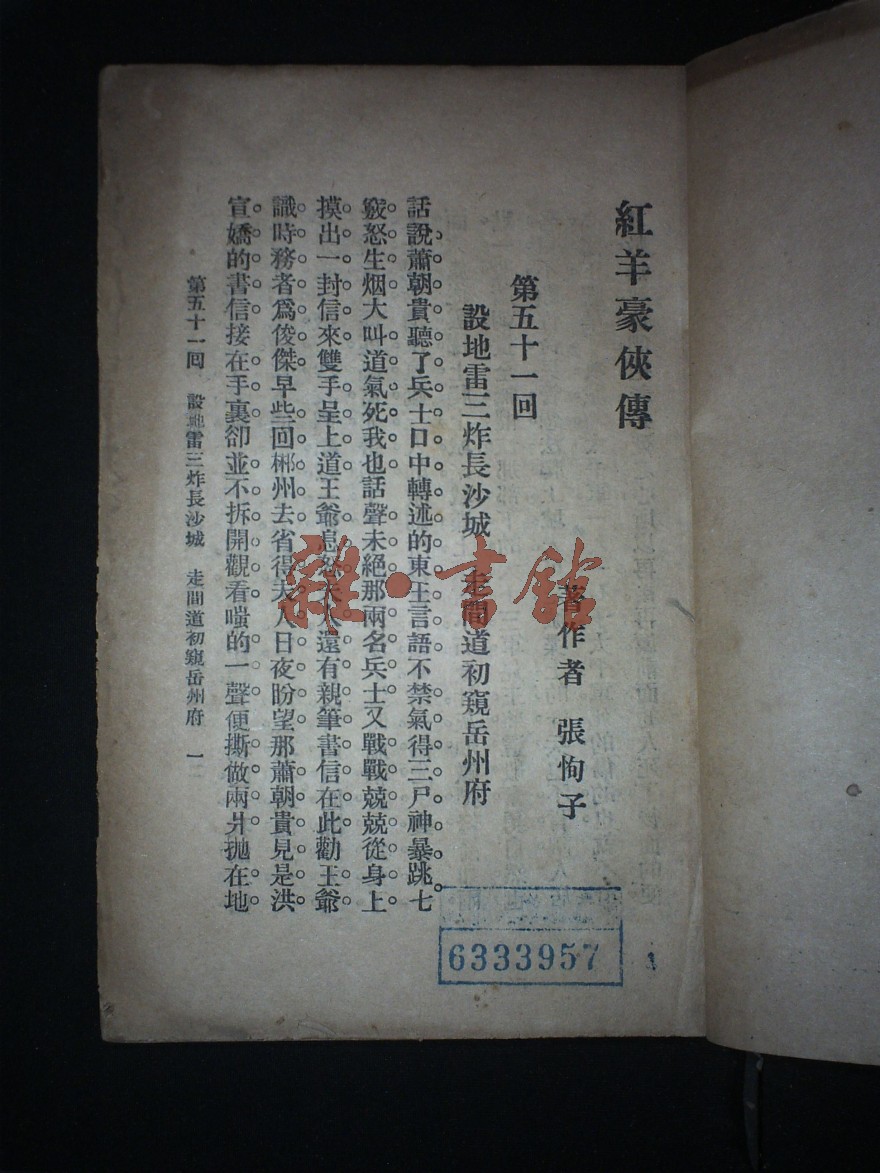 紅羊豪俠傳
著作者 張恂子
第五十一回
設地雷三炸長沙城 走間道初窺岳州府
話說蕭朝貴聽了兵士口中轉述的東王言語不禁氣得三尸神暴跳七
竅怒生烟大叫道氣死我也話聲未絕那兩名兵士又戰戰兢兢從身上
摸出一封信來雙手呈上道王爺息怒夫人還有親筆書信在此勸王爺
識時務者爲俊傑早些回郴州去省得夫人日夜盼望那蕭朝貴見是洪
宣嬌的書信接在手裏卻並不拆開觀看嗤的一聲便撕做兩爿拋在地
第五十一回 設地雷三炸長沙城 走間道初窺岳州府 一
雜·書館
6333957